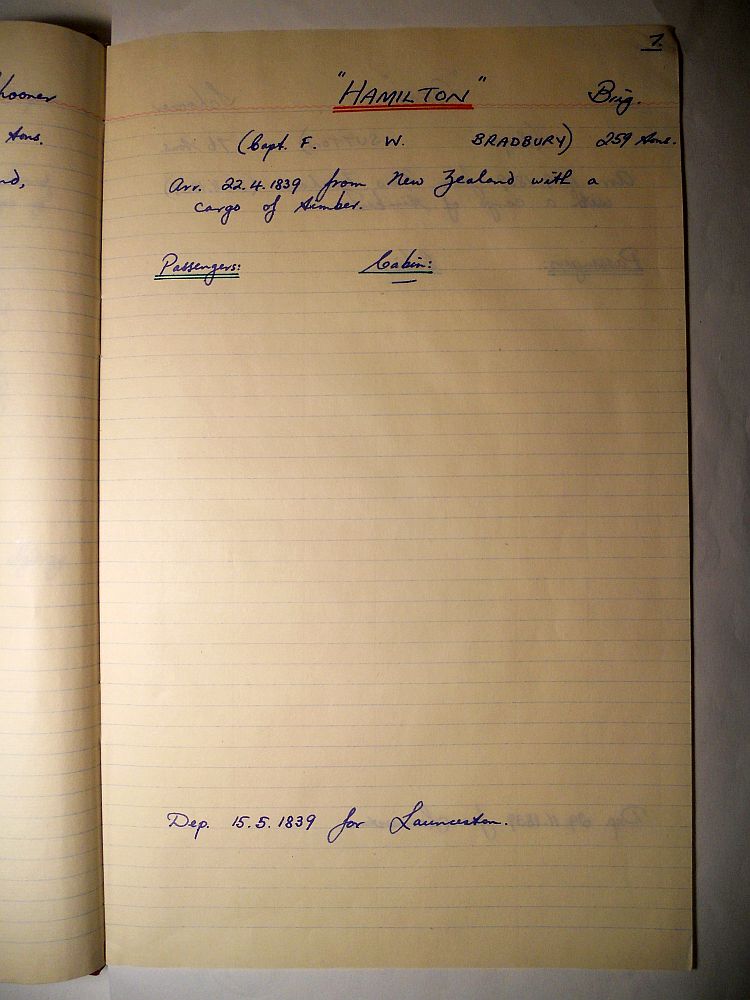 7.
"HAMILTON" Brig.
(Capt. F. W. BRADBURY) 259 tons.
Arr. 22.4.1839 from New Zealand with a
cargo of timber.
Passengers: Cabin:
Dep. 15.5.1839 for Launceston.
tons.